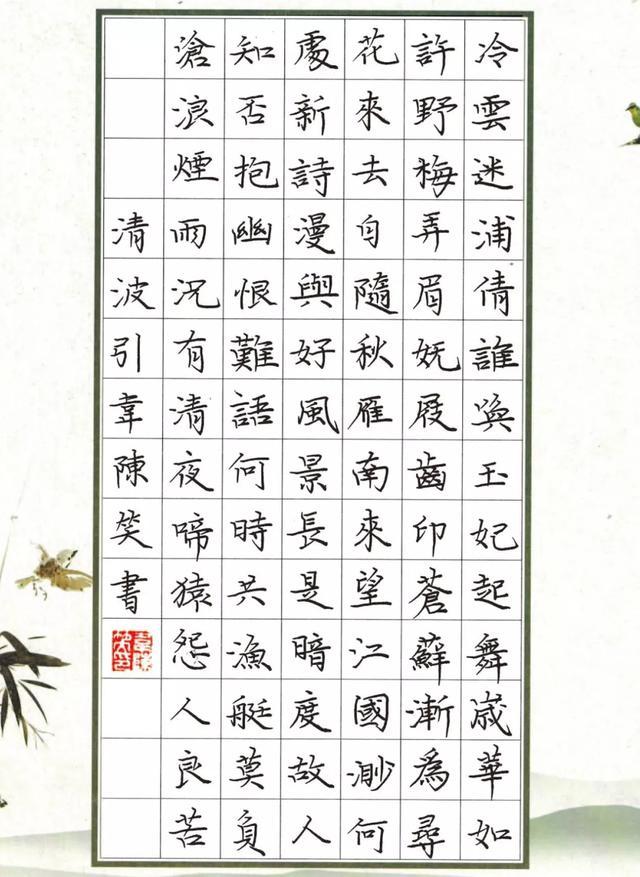 冷雲迷浦倩誰喚玉妃起舞歲華如
許野梅弄眉妩屐齒印蒼蘚漸為尋
花來去自隨秋雁南來望江國渺何
處新詩漫與好風景長是暗度故人
知否抱幽恨難語何時共漁艇莫負
滄浪煙雨況有清夜啼猿怨人良苦
清波引韋陳笑書